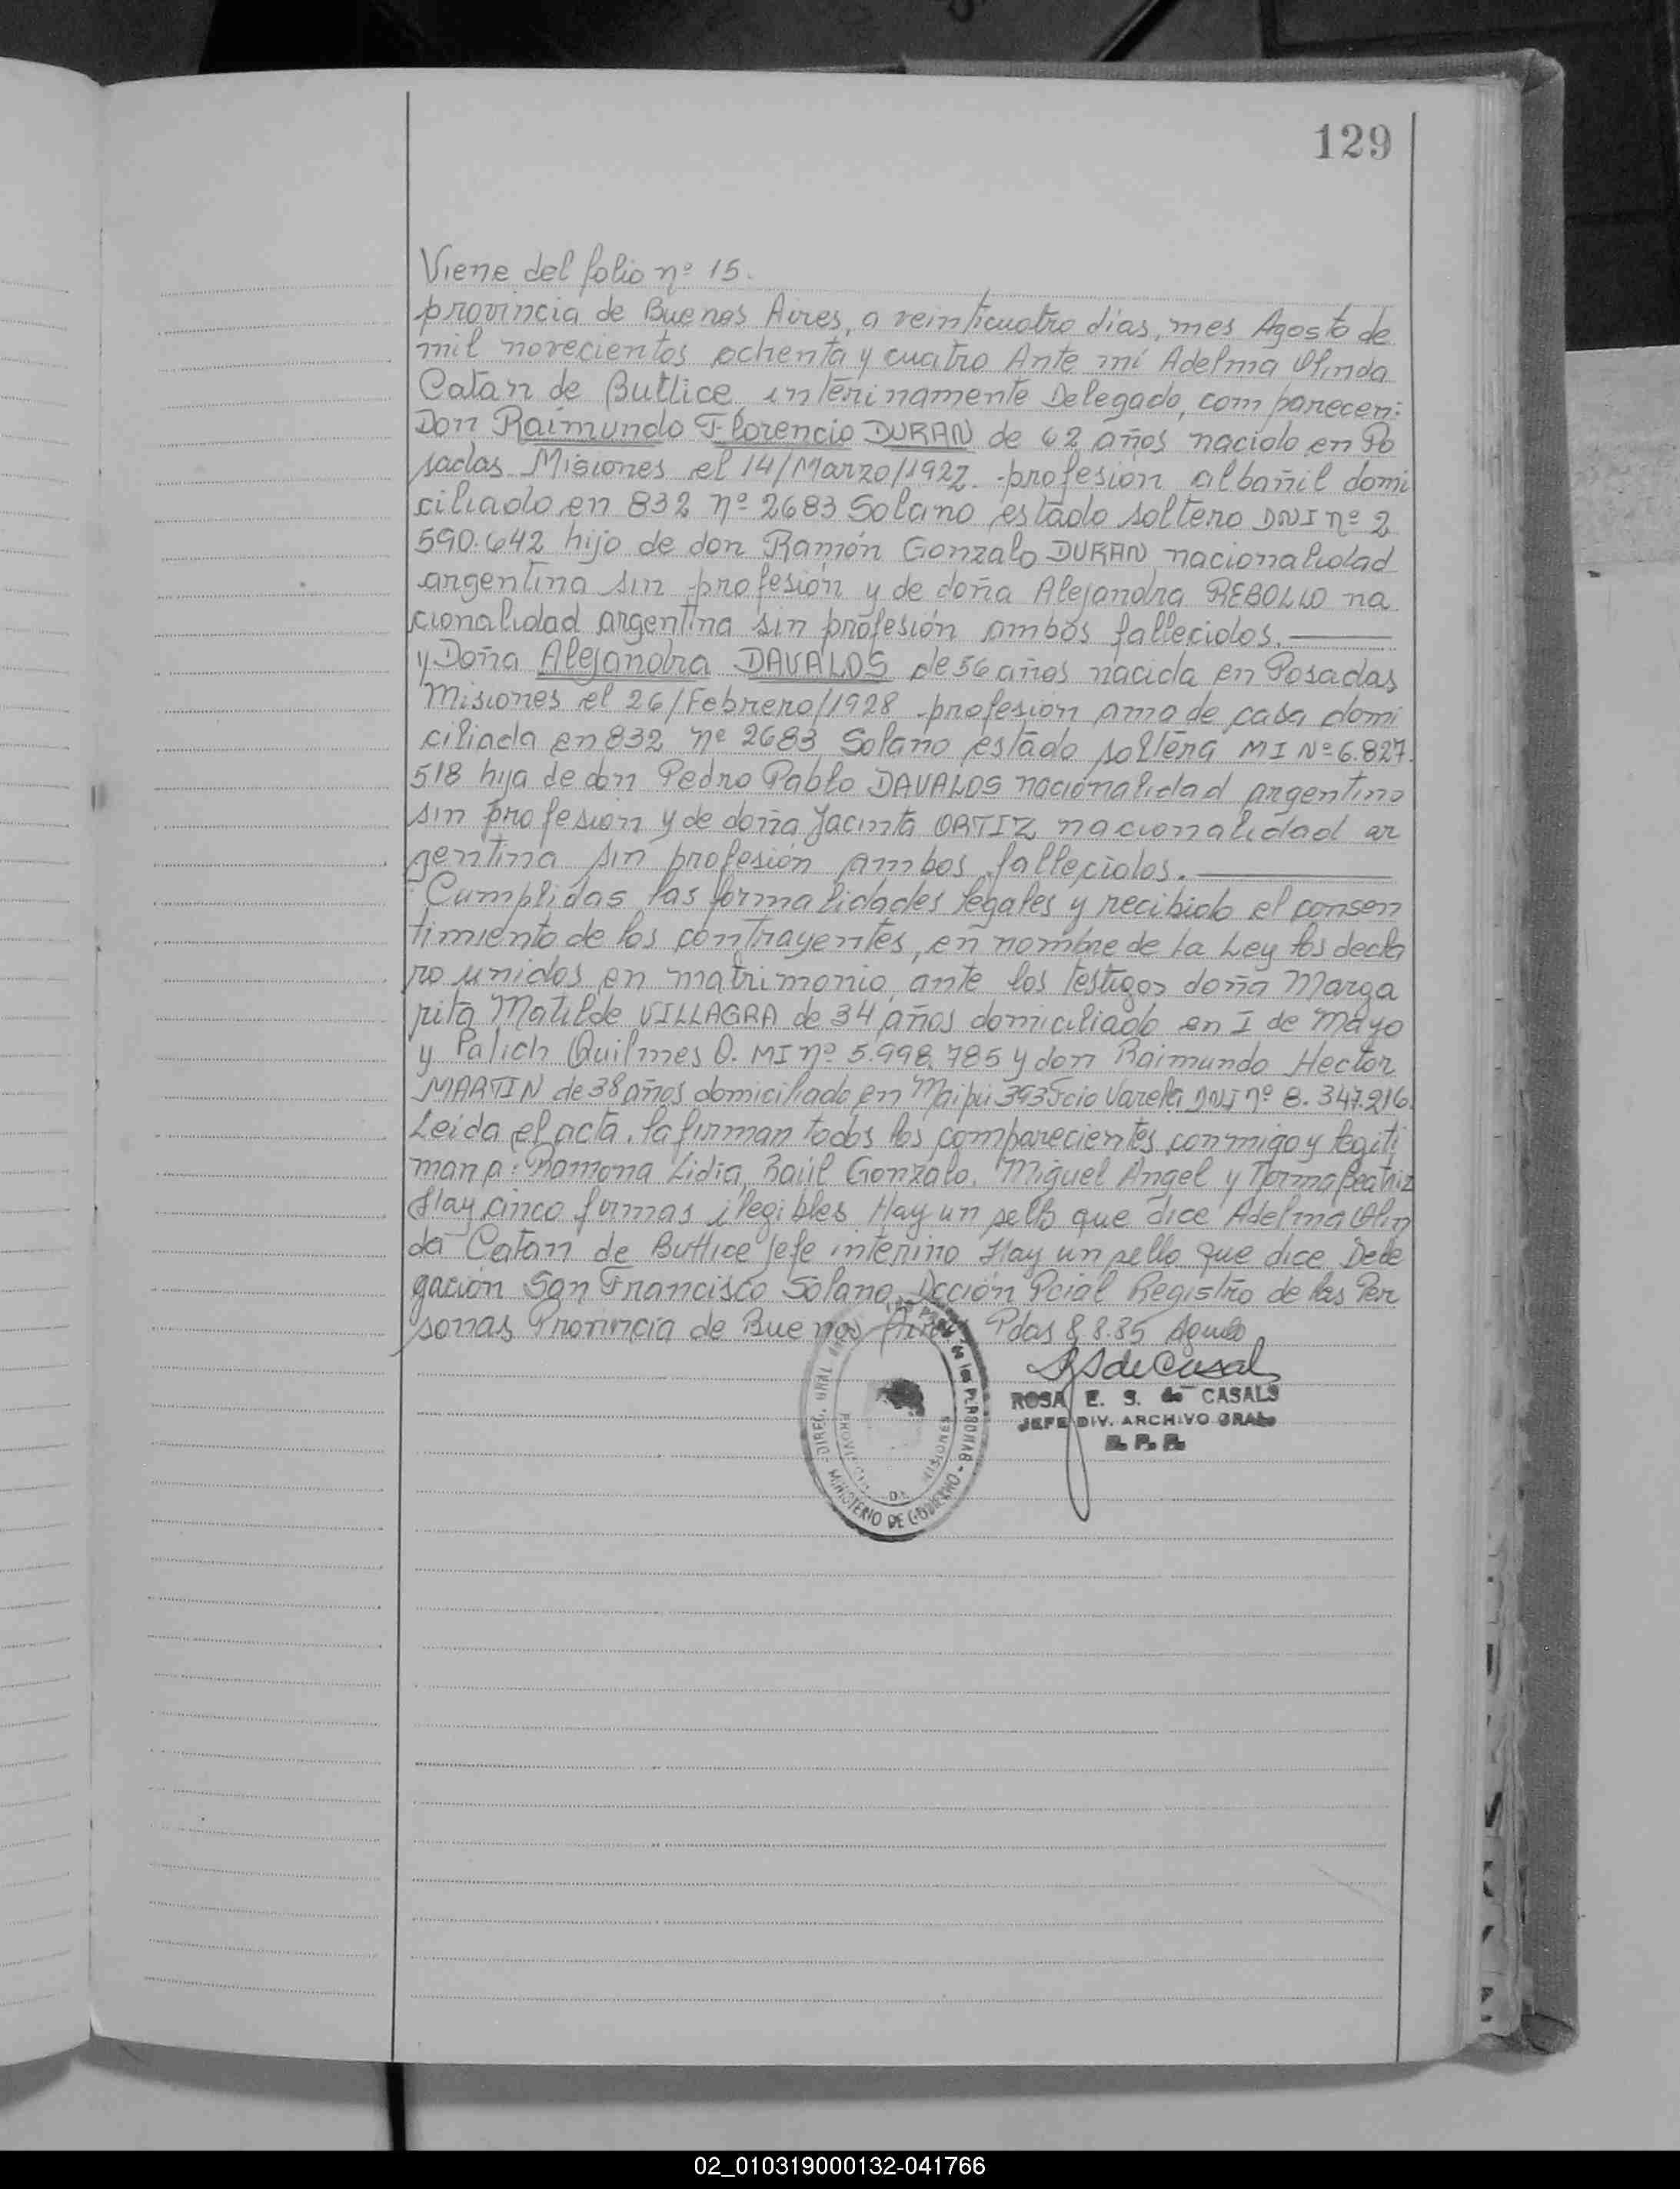 129
Viene del folio nº 15.
provincia de Buenos Aires, a veinticuatro días, mes Agosto de
mil novecientos ochenta y cuatro Ante mí Adelma Olinda
Catan de Buttice, interinamente Delegado, comparecen:
Don Raimundo Florencio DURAN de 62 años nacido en Po
sadas Misiones el 14/Marzo/1922. profesion albañil domi
ciliado en 832 nº 2683 Solano estado soltero DNI nº 2
590.642 hijo de don Ramón Gonzalo DURAN nacionalidad
argentina sin profesión y de doña Alejandra REBOLLO na
cionalidad argentina sin profesión ambos fallecidos.
y Doña Alejandra DAVALOS de 56 años nacida en Posadas
Misiones el 26/Febrero/1928 profesion ama de casa domi
ciliada en 832 nº 2683 Solano estado soltera MI Nº 6.827.
518 hija de don Pedro Pablo DAVALOS nacionalidad argentino
sin profesión y de doña Jacinta ORTIZ nacionalidad ar
gentina sin profesión ambos fallecidos.
Cumplidas las formalidades legales y recibido el consen
timiento de los contrayentes, en nombre de la Ley los decla
ro unidos en matrimonio, ante los testigos doña Marga
rita Matilde VILLAGRA de 34 años domiciliado en I de Mayo
y Palich Quilmes O. MI nº 5.998.785 y don Raimundo Hector
MARTIN de 38 años domiciliado en Maipú 393 Fcio Varela DNI nº 8.347.216.
Leída el acta, la firman todos los comparecientes conmigo y legiti
man a: Ramona Lidia, Raúl Gonzalo, Miguel Angel y Norma Beatriz
Hay cinco firmas ilegibles Hay un sello que dice Adelma Olin
da Catan de Buttice Jefe interino Hay un sello que dice Dele
gación San Francisco Solano Dcción Pcial Registro de las Per
sonas Provincia de Buenos Aires Pdas 8.8.85
ROSA E. S. de CASALS
JEFE DIV. ARCHIVO GRAL
R. P. P.
DIREC. GRAL de las PERSONAS - MINISTERIO DE GOBIERNO -
PROVINCIA DE MISIONES
02_010319000132-041766